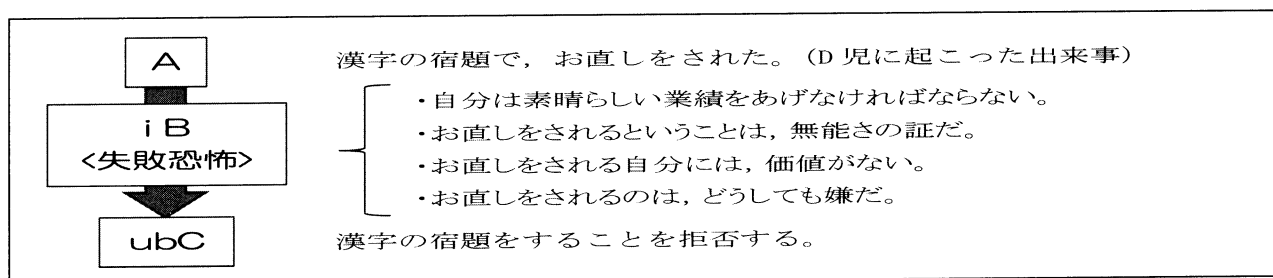 A 漢字の宿題で，お直しをされた。(D児に起こった出来事)
・自分は素晴らしい業績をあげなければならない。
iB ・お直しをされるということは，無能さの証だ。
<失敗恐怖> ・お直しをされる自分には，価値がない。
・お直しをされるのは，どうしても嫌だ。
ubC 漢字の宿題をすることを拒否する。